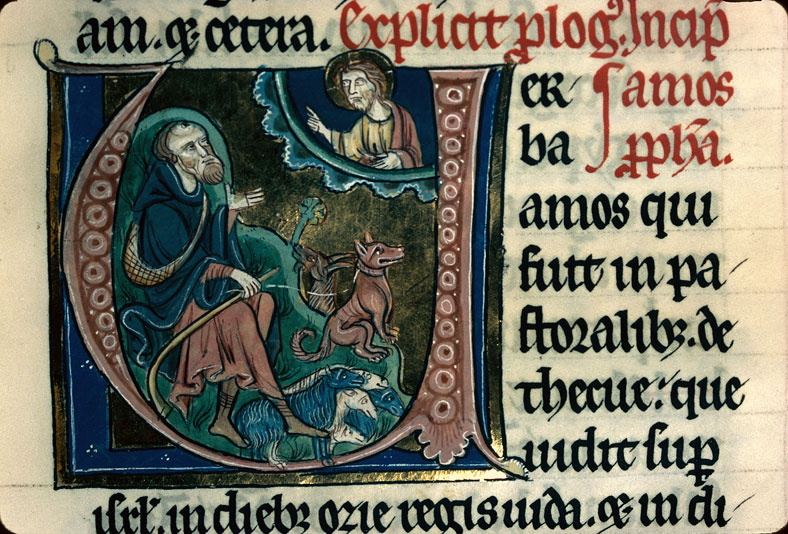 am. ⁊ cetera. Explicit plog᷒. Incip̄
VER- amos
ba pph̄a.
amos qui
fuit in pa-
storalibꝫ. de
thecue: que
uidit suꝑ
isrł. in diebꝫ ozie regis iuda. ⁊ in di-